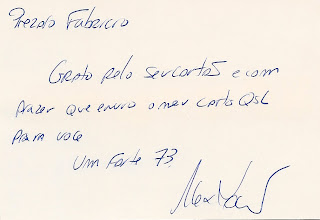 Prezado Fabricio
Grato pelo seu cartão e com
prazer que envio o meu cartão QSL
para voce
Um Forte 73